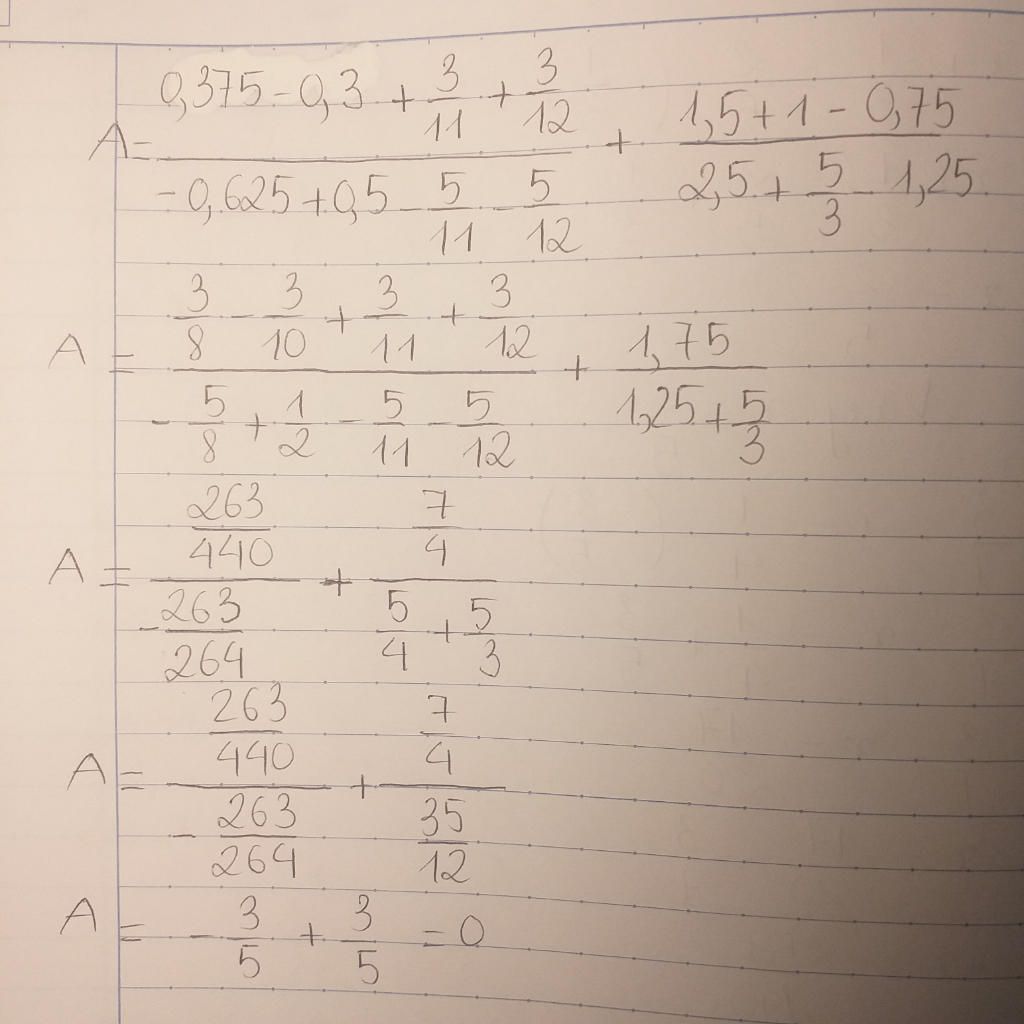 A = (0,375 - 0,3 + 3/11 + 3/12)/(-0,625 + 0,5 - 5/11 - 5/12) + (1,5 + 1 - 0,75)/(2,5 + 5/3 - 1,25)
A = (3/8 - 3/10 + 3/11 + 3/12)/(-5/8 + 1/2 - 5/11 - 5/12) + 1,75/(1,25 + 5/3)
A = (263/440)/(-263/264) + (7/4)/(5/4 + 5/3)
A = (263/440)/(-263/264) + (7/4)/(35/12)
A = -3/5 + 3/5 = 0